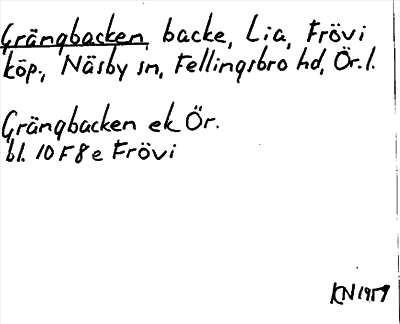 Grängbacken, backe, Lia, Frövi
köp., Näsby sn, Fellingsbro hd, Ör.l.
Grängbacken ek Ör.
bl. 10 F 8 e Frövi
KN 1959